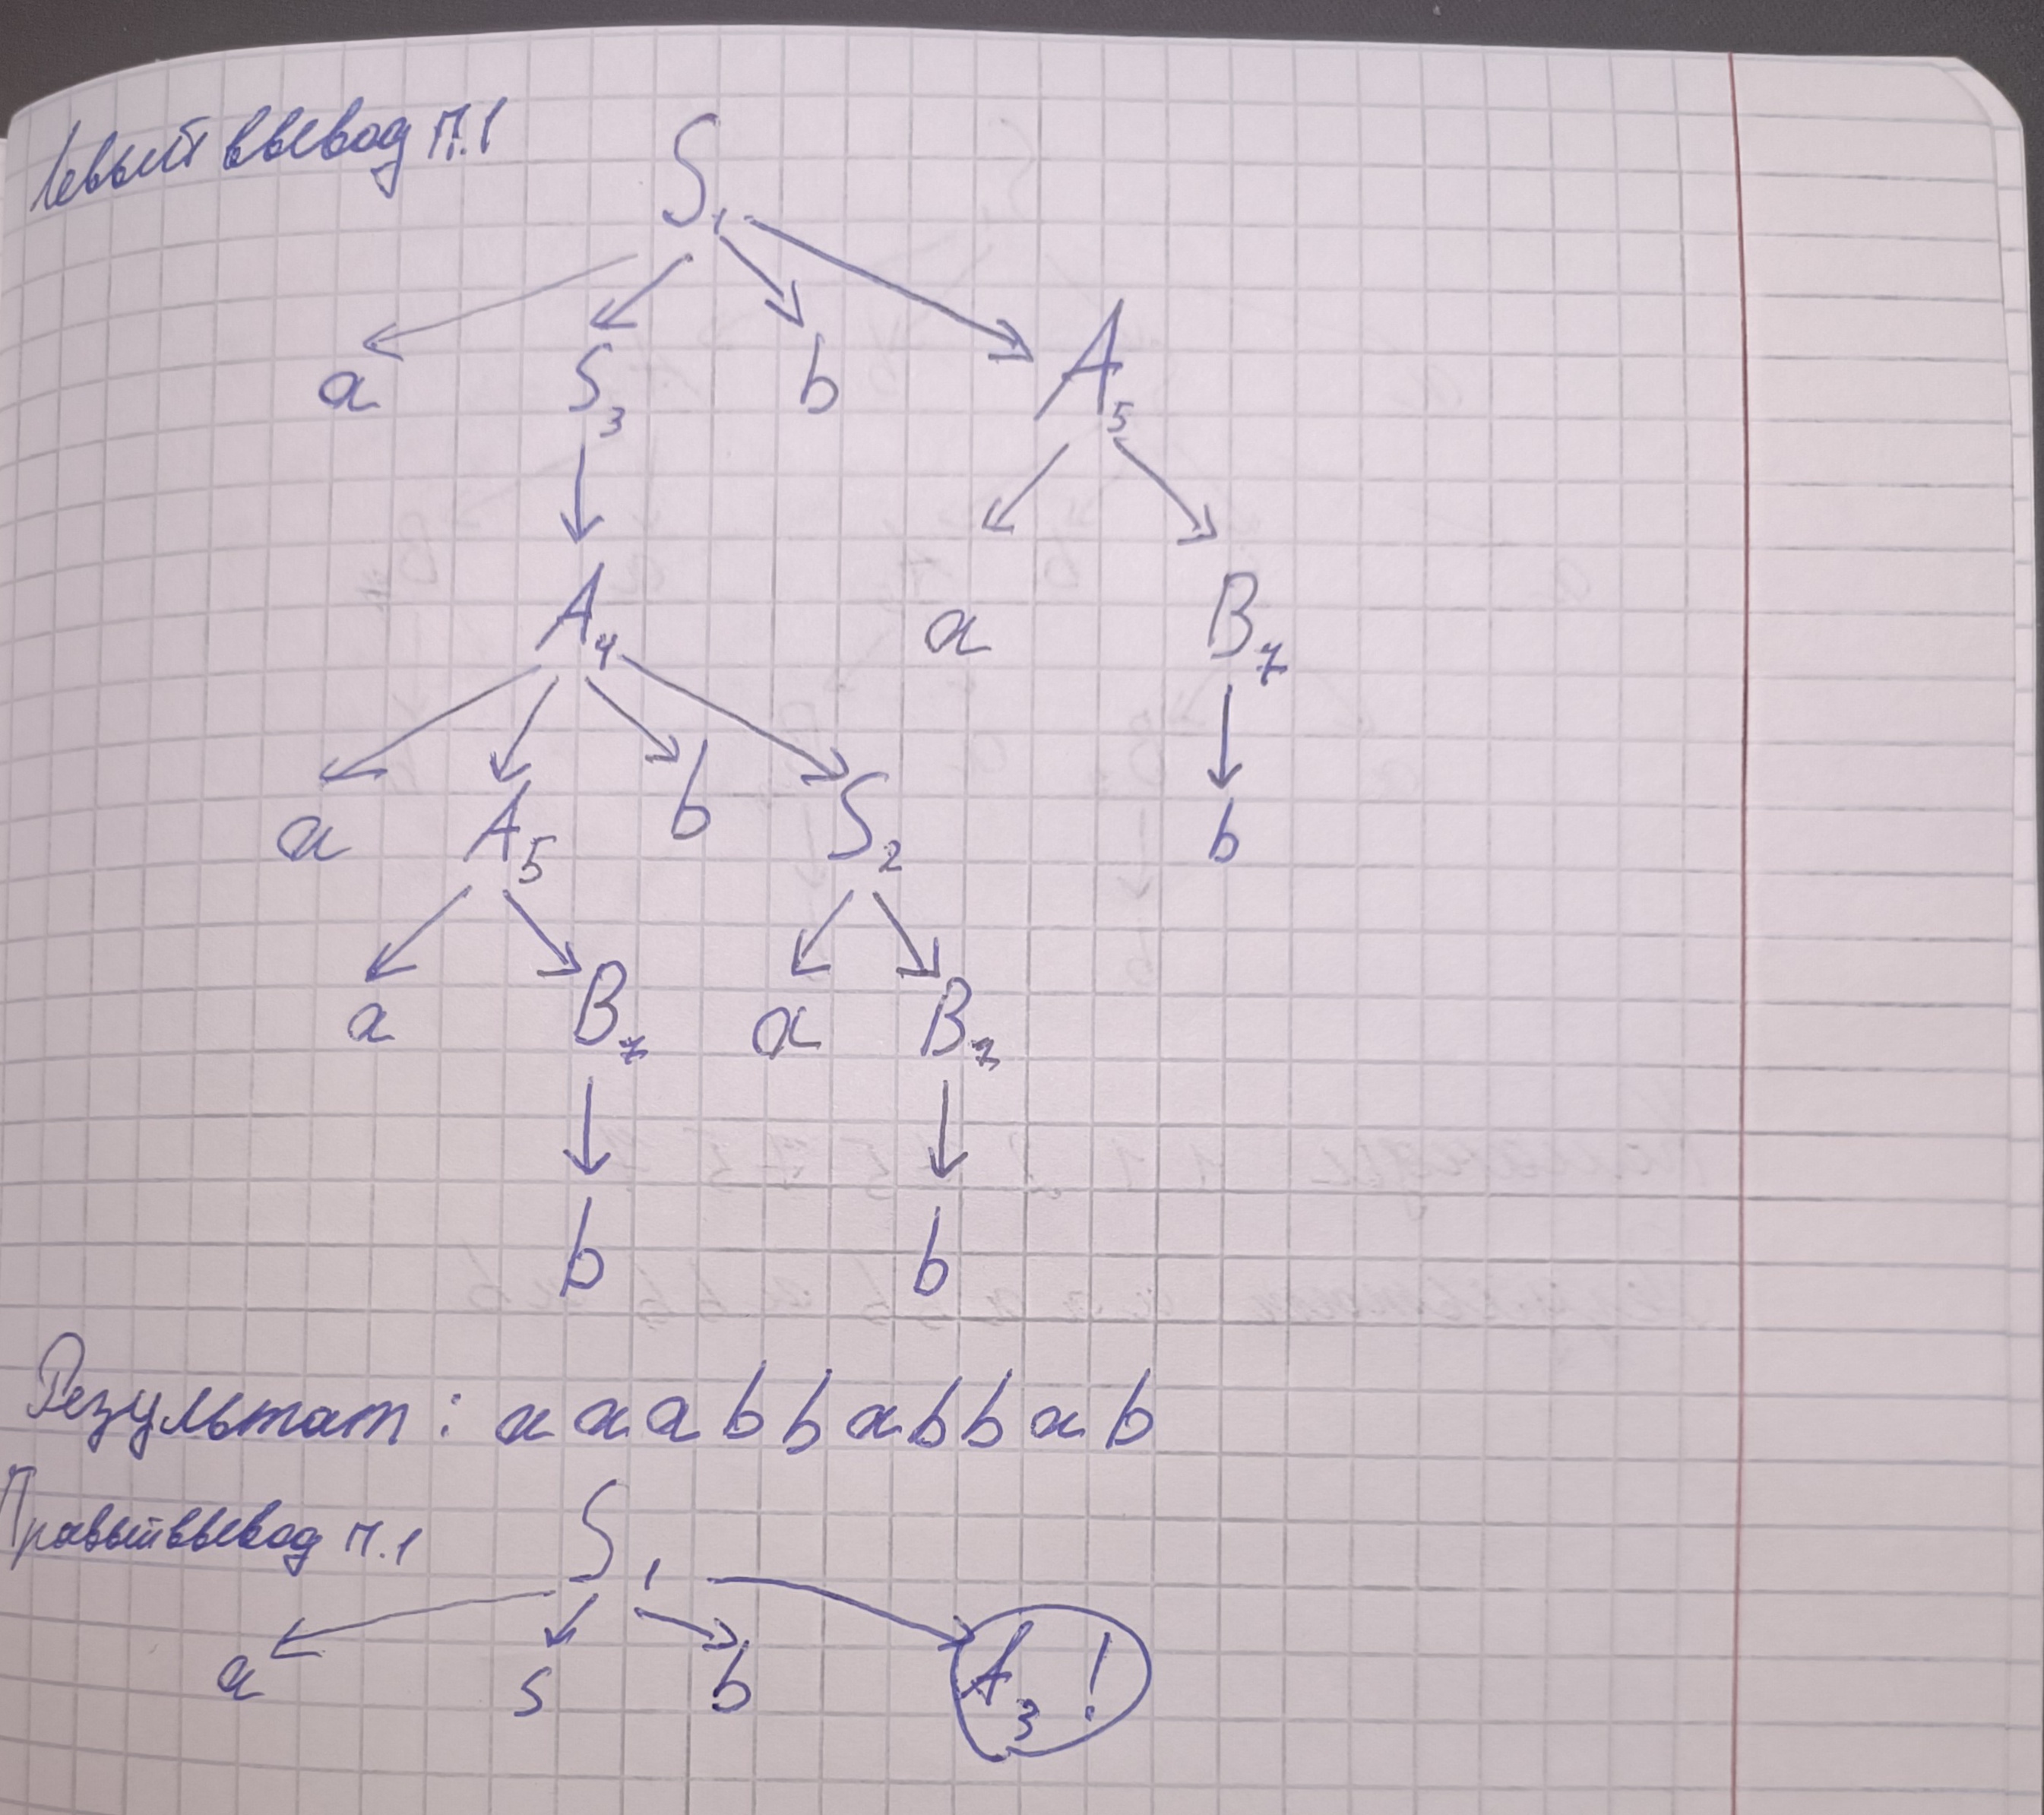 Левый ввывод п.1
S₁
a S₃ b A₅
A₄ a B₇
a A₅ b S₂ b
a B₇ a B₇
b b
Результат: aaabbabbab
Правый ввывод п.1
S₁
a S b A₃ !